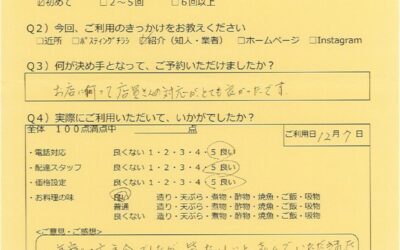 ☑初めて　□２～５回　□６回以上
Q２）今回、ご利用のきっかけをお教えください
□近所　□ﾎﾟｽﾃｨﾝｸﾞﾁﾗｼ　☑紹介（知人・業者）　□ホームページ　□Instagram
Q３）何が決め手となって、ご予約いただけましたか？
お店に伺って店員さんの対応がとても良かったです
Q４）実際にご利用いただいて、いかがでしたか？
全体　１００点満点中　　　　　点
ご利用日 12月7日
・電話対応　良くない １・２・３・４・５ 良い
・配達スタッフ　良くない １・２・３・４・５ 良い
・価格設定　良くない １・２・３・４・５ 良い
・お料理の味　良い　造り・天ぷら・煮物・酢物・焼魚・ご飯・吸物
普通　造り・天ぷら・煮物・酢物・焼魚・ご飯・吸物
良くない　造り・天ぷら・煮物・酢物・焼魚・ご飯・吸物
＜ご意見・ご感想＞